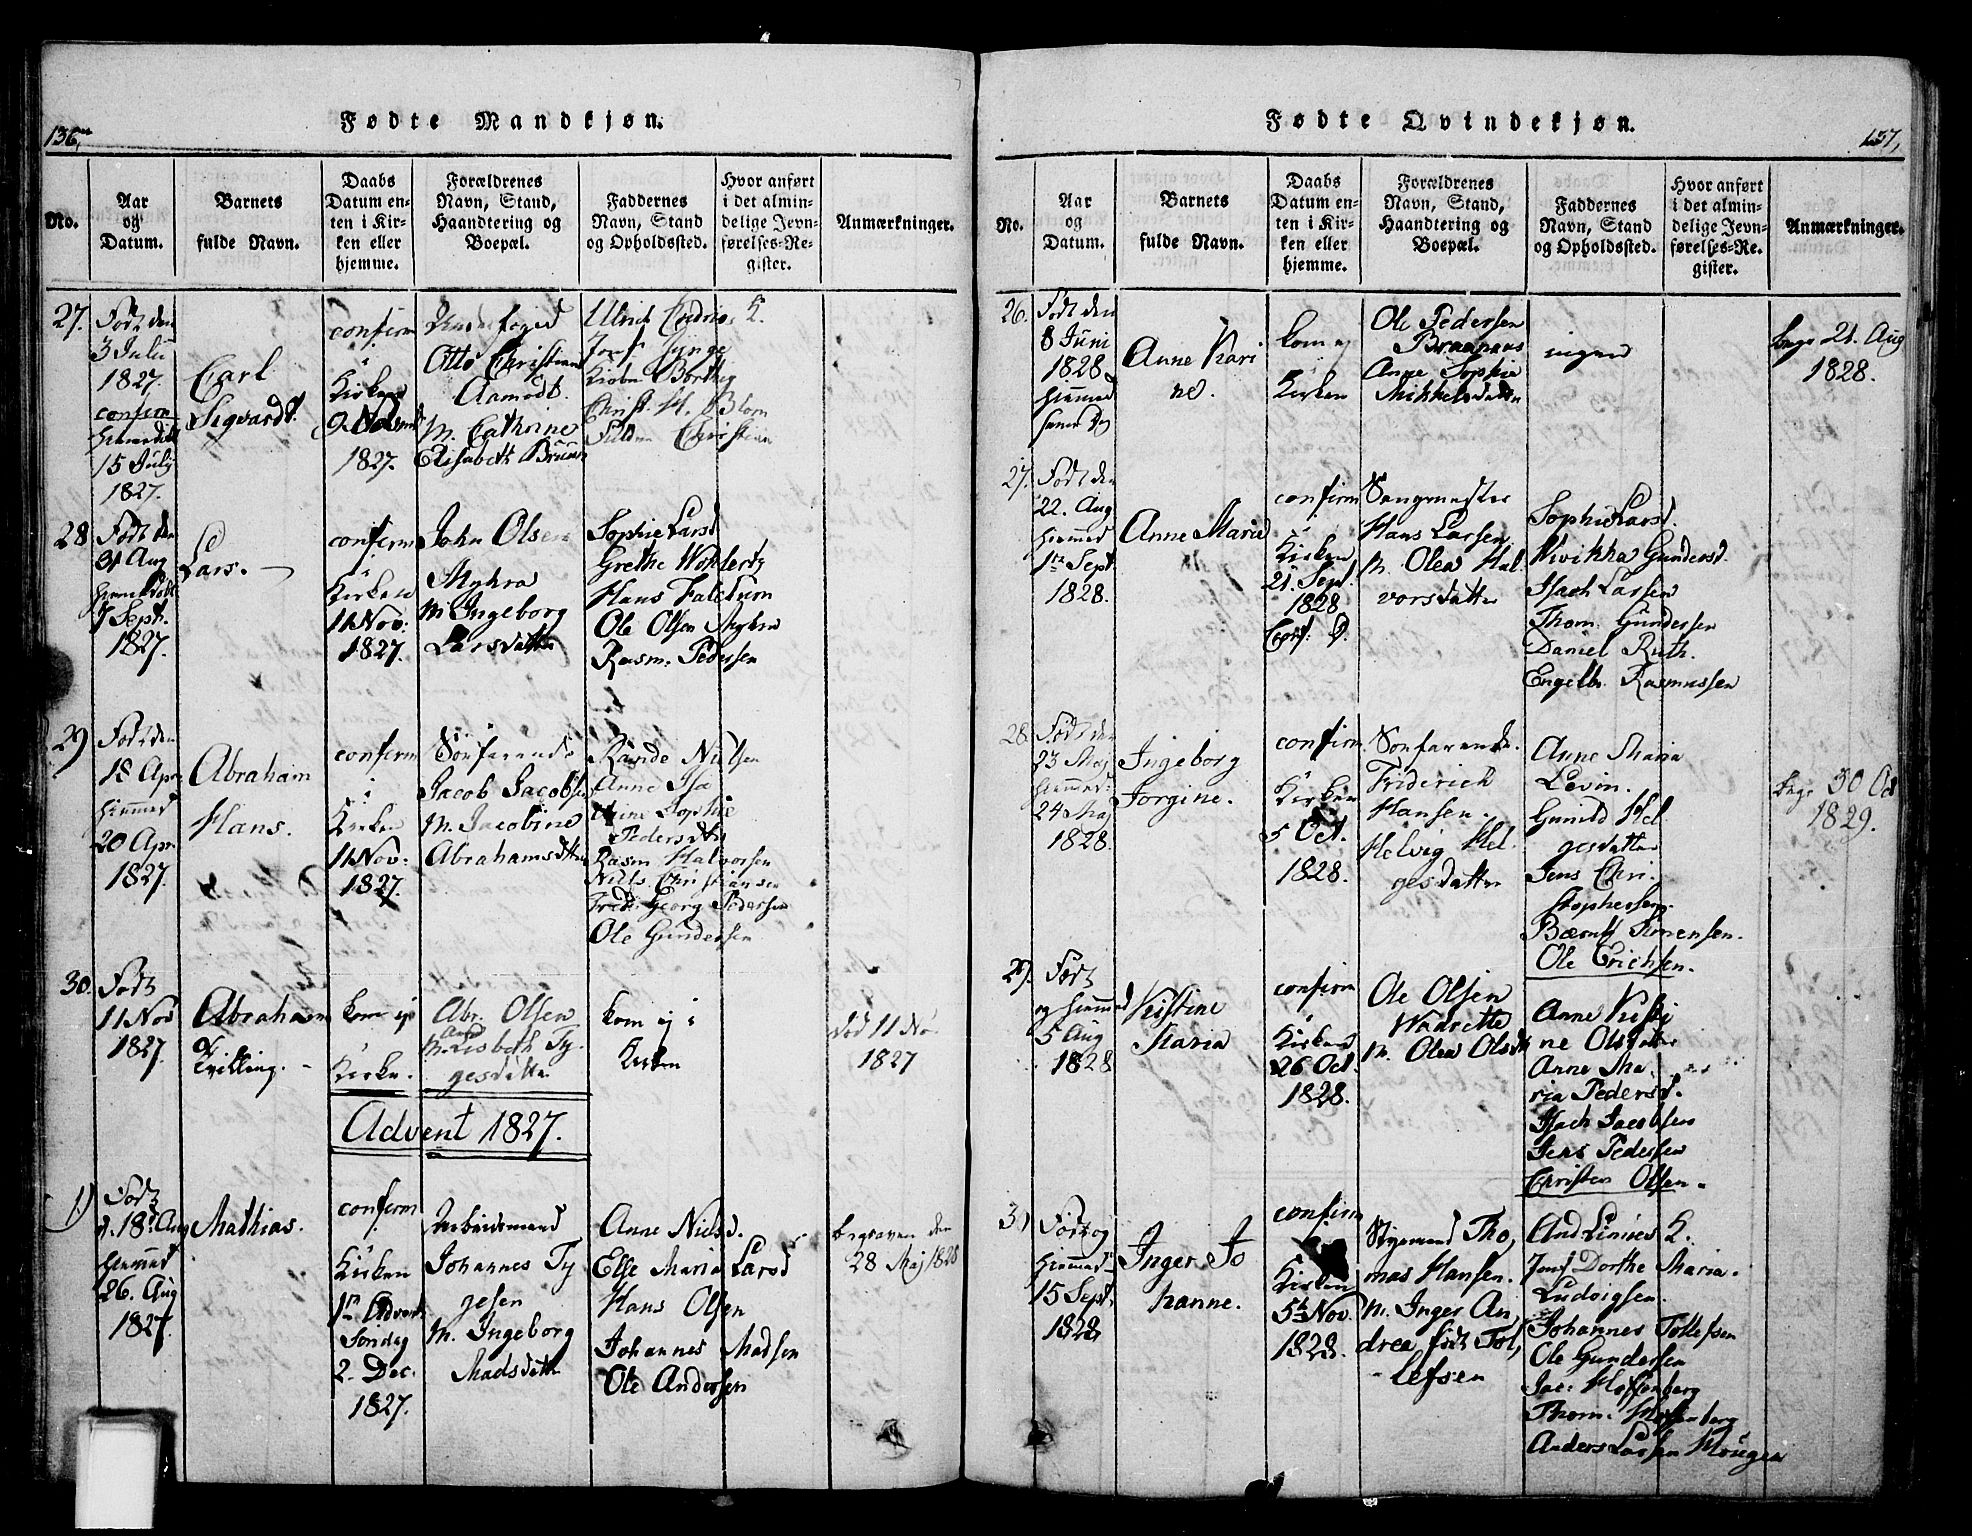 136,
Fødte Mandkjøn.
No.
Aar
og
Datum.
Barnets
fulde Navn.
Daabs
Datum en-
ten i Kir-
ken eller
hjemme.
Forældrenes
Navn, Stand,
Haandtering og
Boepæl.
Faddernes
Navn, Stand
og Opholdssted.
Hvor anført
i det almin-
delige Jevn-
førelses-Re-
gister.
Anmærkninger.
27.
Født den
3 Julii
1827.
confirm
15 July
1827.
Carl
Sigvardt.
confirm
i
Kirken
9 Novem
1827.
Otto Christian
Aamodt.
M. Cathrine
Elisabeth Bruun
Ulrich
Jomf Junge
Christ. H. Blom
Christian
28
Født den
31 Aug
7 Sept.
1827.
Lars.
confirm
i
Kirken
11 Nov:
1827.
John Olsen
Myhra
M. Ingeborg
Larsdatter
Sophie Larsd
Grethe Wohlertz
Hans Falckum
Ole Olsen Myhra
Rasm. Pedersen
29)
Født den
18 Apr.
hiemmed
20 Apr.
1827.
Abraham
Hans.
confirm
i
Kirken
11 Nov:
1827.
Søefarende
Jacob Jacobsen
M. Jacobine
Abrahamsdtter
Rande Nielsen
Anne Isa
Sophie
Pedersdtr
Rasm Halvorsen
Niels Christiansen
Fred. Georg Pedersen
Ole Gundersen
30.
Født
11 Nov
1827.
Abraham
Tvilling.
kom ej
i
Kirke.
Abr. Olsen
M. Lisbeth Ty,
gesdatter
kom ej i
Kirken
død 11 No.
1827
Advent 1827.
1)
Født
d. 18 Aug
hiemmed
26. Aug
1827.
Mathias.
confirm
i
Kirken
1ste Advent
Søndag
2. Dec.
1827.
Arbeidsmand
Johannes Ty
gesen
M. Ingeborg
Madsdatter
Anne Nielsd.
Else Maria Larsd
Hans Olsen
Johannes Madsen
Ole Andersen
begraven den
28 Maj 1828
137,
Fødte Qvindekjøn.
No.
Aar
og
Datum.
Barnets
fulde Navn.
Daabs
Datum en-
ten i Kir-
ken eller
hjemme.
Forældrenes
Navn, Stand,
Haandtering og
Boepæl.
Faddernes
Navn, Stand
og Opholdssted.
Hvor anført
i det almin-
delige Jevn-
førelses-Re-
gister.
Anmærkninger.
26.
Født den
8 Juni
1828
hiemmed
samme Dag
Anne Kari
ne.
kom ej
i
Kirken
Ole Pedersen
Anne Sophie
Mikkelsdatter
ingen
begr 21. Aug
1828.
27.
Født den
22. Aug
hiemmed
1ste Sept.
1828.
Anne Maria
confirm
i
Kirken
21. Sept.
1828
Hans Larsen
M. Olea Hal
vorsdatter
Sophie Larsd.
Wivikka Gundersd.
Isach Larsen
Thom. Gundersen
Daniel Ruth.
Engelbr. Rasmussen
28.
Født den
23 Maj
hiemmed:
24 Maj
1828.
Ingeborg
Jorgine.
confirm
i
Kirken
5 Oct.
1828.
Søefarende.
Friderich
Hansen.
Helvig Hel.
gesdatter
Anne Maria
Levin.
Gunild Hel
gesdatter
Jens Chri.
stophersen.
Bærnth Simensen.
Ole Erichsen.
begr 30 Oct
1829.
29.
Født
og hiemmed
5 Aug
1828
Kistine
Maria
confirm
i
Kirken
26 Oct.
1828.
Ole Olsen
Wadrette
M. Olea Olsdt
Anne Kisti
ne Olsdatter
Anne Ma.
ria Pedersd.
Isach Jacobsen
Jens Pedersen
Christen Olsen.
3)
Født og
hiemmed
15 Sept.
1828
Inger Jo
hanne.
confirm
i
Kirken
5te Nov.
1828.
Styrmand Tho,
mas Hansen.
M. Inger An,
drea født Tol,
lefsen
And Linnes K.
Jomf Dorthe Maria.
Ludvigsen.
Johannes Tollefsen
Ole Gundersen
Jac: Hoffenberg
Thom. Hoffenberg
Anders Larsen Hougen